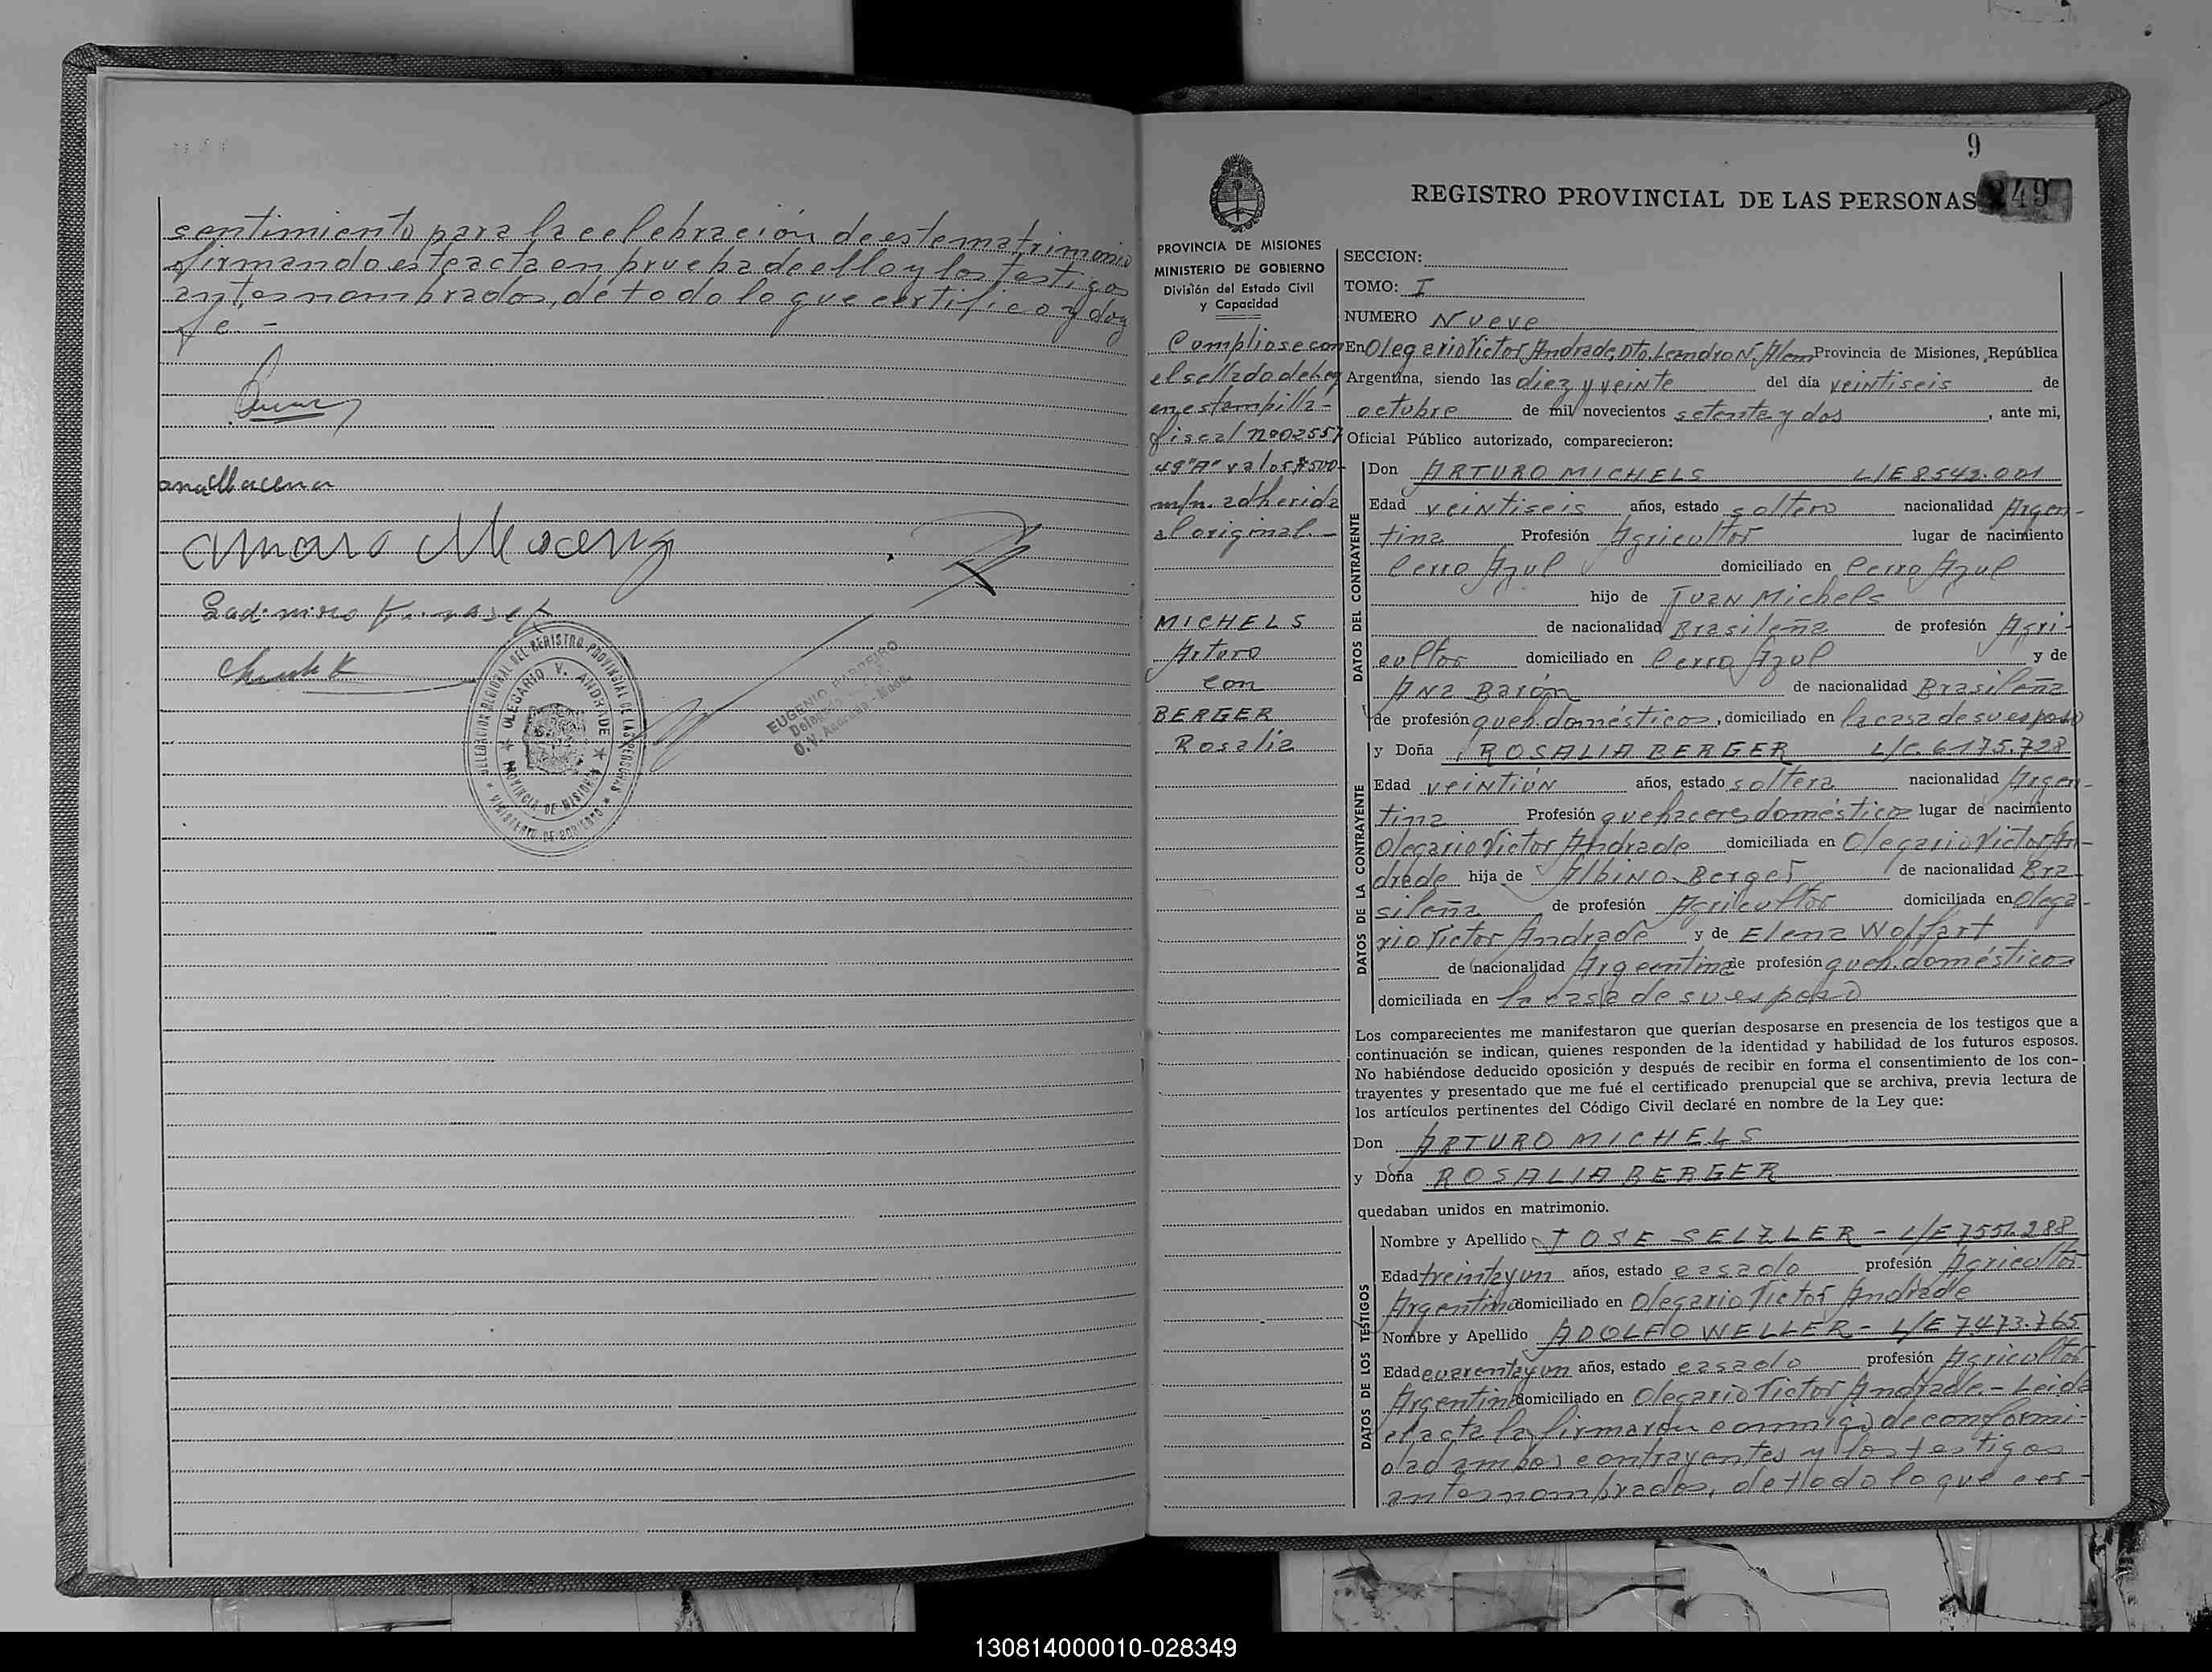 sentimiento para la celebración de este matrimonio
firmando este acta en prueba de ello y los testigos
antes nombrados, de todo lo que certifico y doy
fe -
ana Macena
Amaro Macena
DELEGACION REGIONAL DEL REGISTRO PROVINCIAL DE LAS PERSONAS
OLEGARIO V. ANDRADE
PROVINCIA DE MISIONES
MINISTERIO DE GOBIERNO
EUGENIO BARREIRO
O. V. Andrade - Mnes.
9
REGISTRO PROVINCIAL DE LAS PERSONAS 249
PROVINCIA DE MISIONES
MINISTERIO DE GOBIERNO
División del Estado Civil
y Capacidad
Cumpliose con
el sellado de ley
en estampilla
fiscal nº 02557
49"A" valor $500-
m/n. adherida
al original.-
MICHELS
Arturo
con
BERGER
Rosalia
SECCION:
TOMO: I
NUMERO Nueve
En Olegario Victor Andrade, Dto. Leandro N. Alem Provincia de Misiones, República
Argentina, siendo las diez y veinte del día veintiseis de
octubre de mil novecientos setenta y dos, ante mi,
Oficial Público autorizado, comparecieron:
DATOS DEL CONTRAYENTE
Don ARTURO MICHELS L/E 8542.001
Edad veintiseis años, estado soltero nacionalidad Argen-
tina Profesión Agricultor lugar de nacimiento
Cerro Azul domiciliado en Cerro Azul
hijo de Juan Michels
de nacionalidad Brasileña de profesión Agri-
cultor domiciliado en Cerro Azul y de
Ana Barón de nacionalidad Brasileña
de profesión queh. domésticos, domiciliado en la casa de su esposo
DATOS DE LA CONTRAYENTE
y Doña ROSALIA BERGER L/C. 6175.728
Edad veintiún años, estado soltera nacionalidad Argen-
tina Profesión quehaceres domésticos lugar de nacimiento
Olegario Victor Andrade domiciliada en Olegario Victor An-
drade hija de Albino Berger de nacionalidad Bra-
sileña de profesión Agricultor domiciliada en Olega-
rio Victor Andrade y de Elena Wolfart
de nacionalidad Argentina de profesión queh. domésticos
domiciliada en la casa de su esposo
Los comparecientes me manifestaron que querían desposarse en presencia de los testigos que a
continuación se indican, quienes responden de la identidad y habilidad de los futuros esposos.
No habiéndose deducido oposición y después de recibir en forma el consentimiento de los con-
trayentes y presentado que me fué el certificado prenupcial que se archiva, previa lectura de
los artículos pertinentes del Código Civil declaré en nombre de la Ley que:
Don ARTURO MICHELS
y Doña ROSALIA BERGER
quedaban unidos en matrimonio.
DATOS DE LOS TESTIGOS
Nombre y Apellido JOSE SELZLER - L/E 7551.288
Edad treinta y un años, estado casado profesión Agricultor
Argentina domiciliado en Olegario Victor Andrade
Nombre y Apellido ADOLFO WELLER - L/E 7473.765
Edad cuarenta y un años, estado casado profesión Agricultor
Argentina domiciliado en Olegario Victor Andrade.- Leida
el acta la firmaron conmigo de conformi-
dad ambos contrayentes y los testigos
antes nombrados, de todo lo que cer-
130814000010-028349